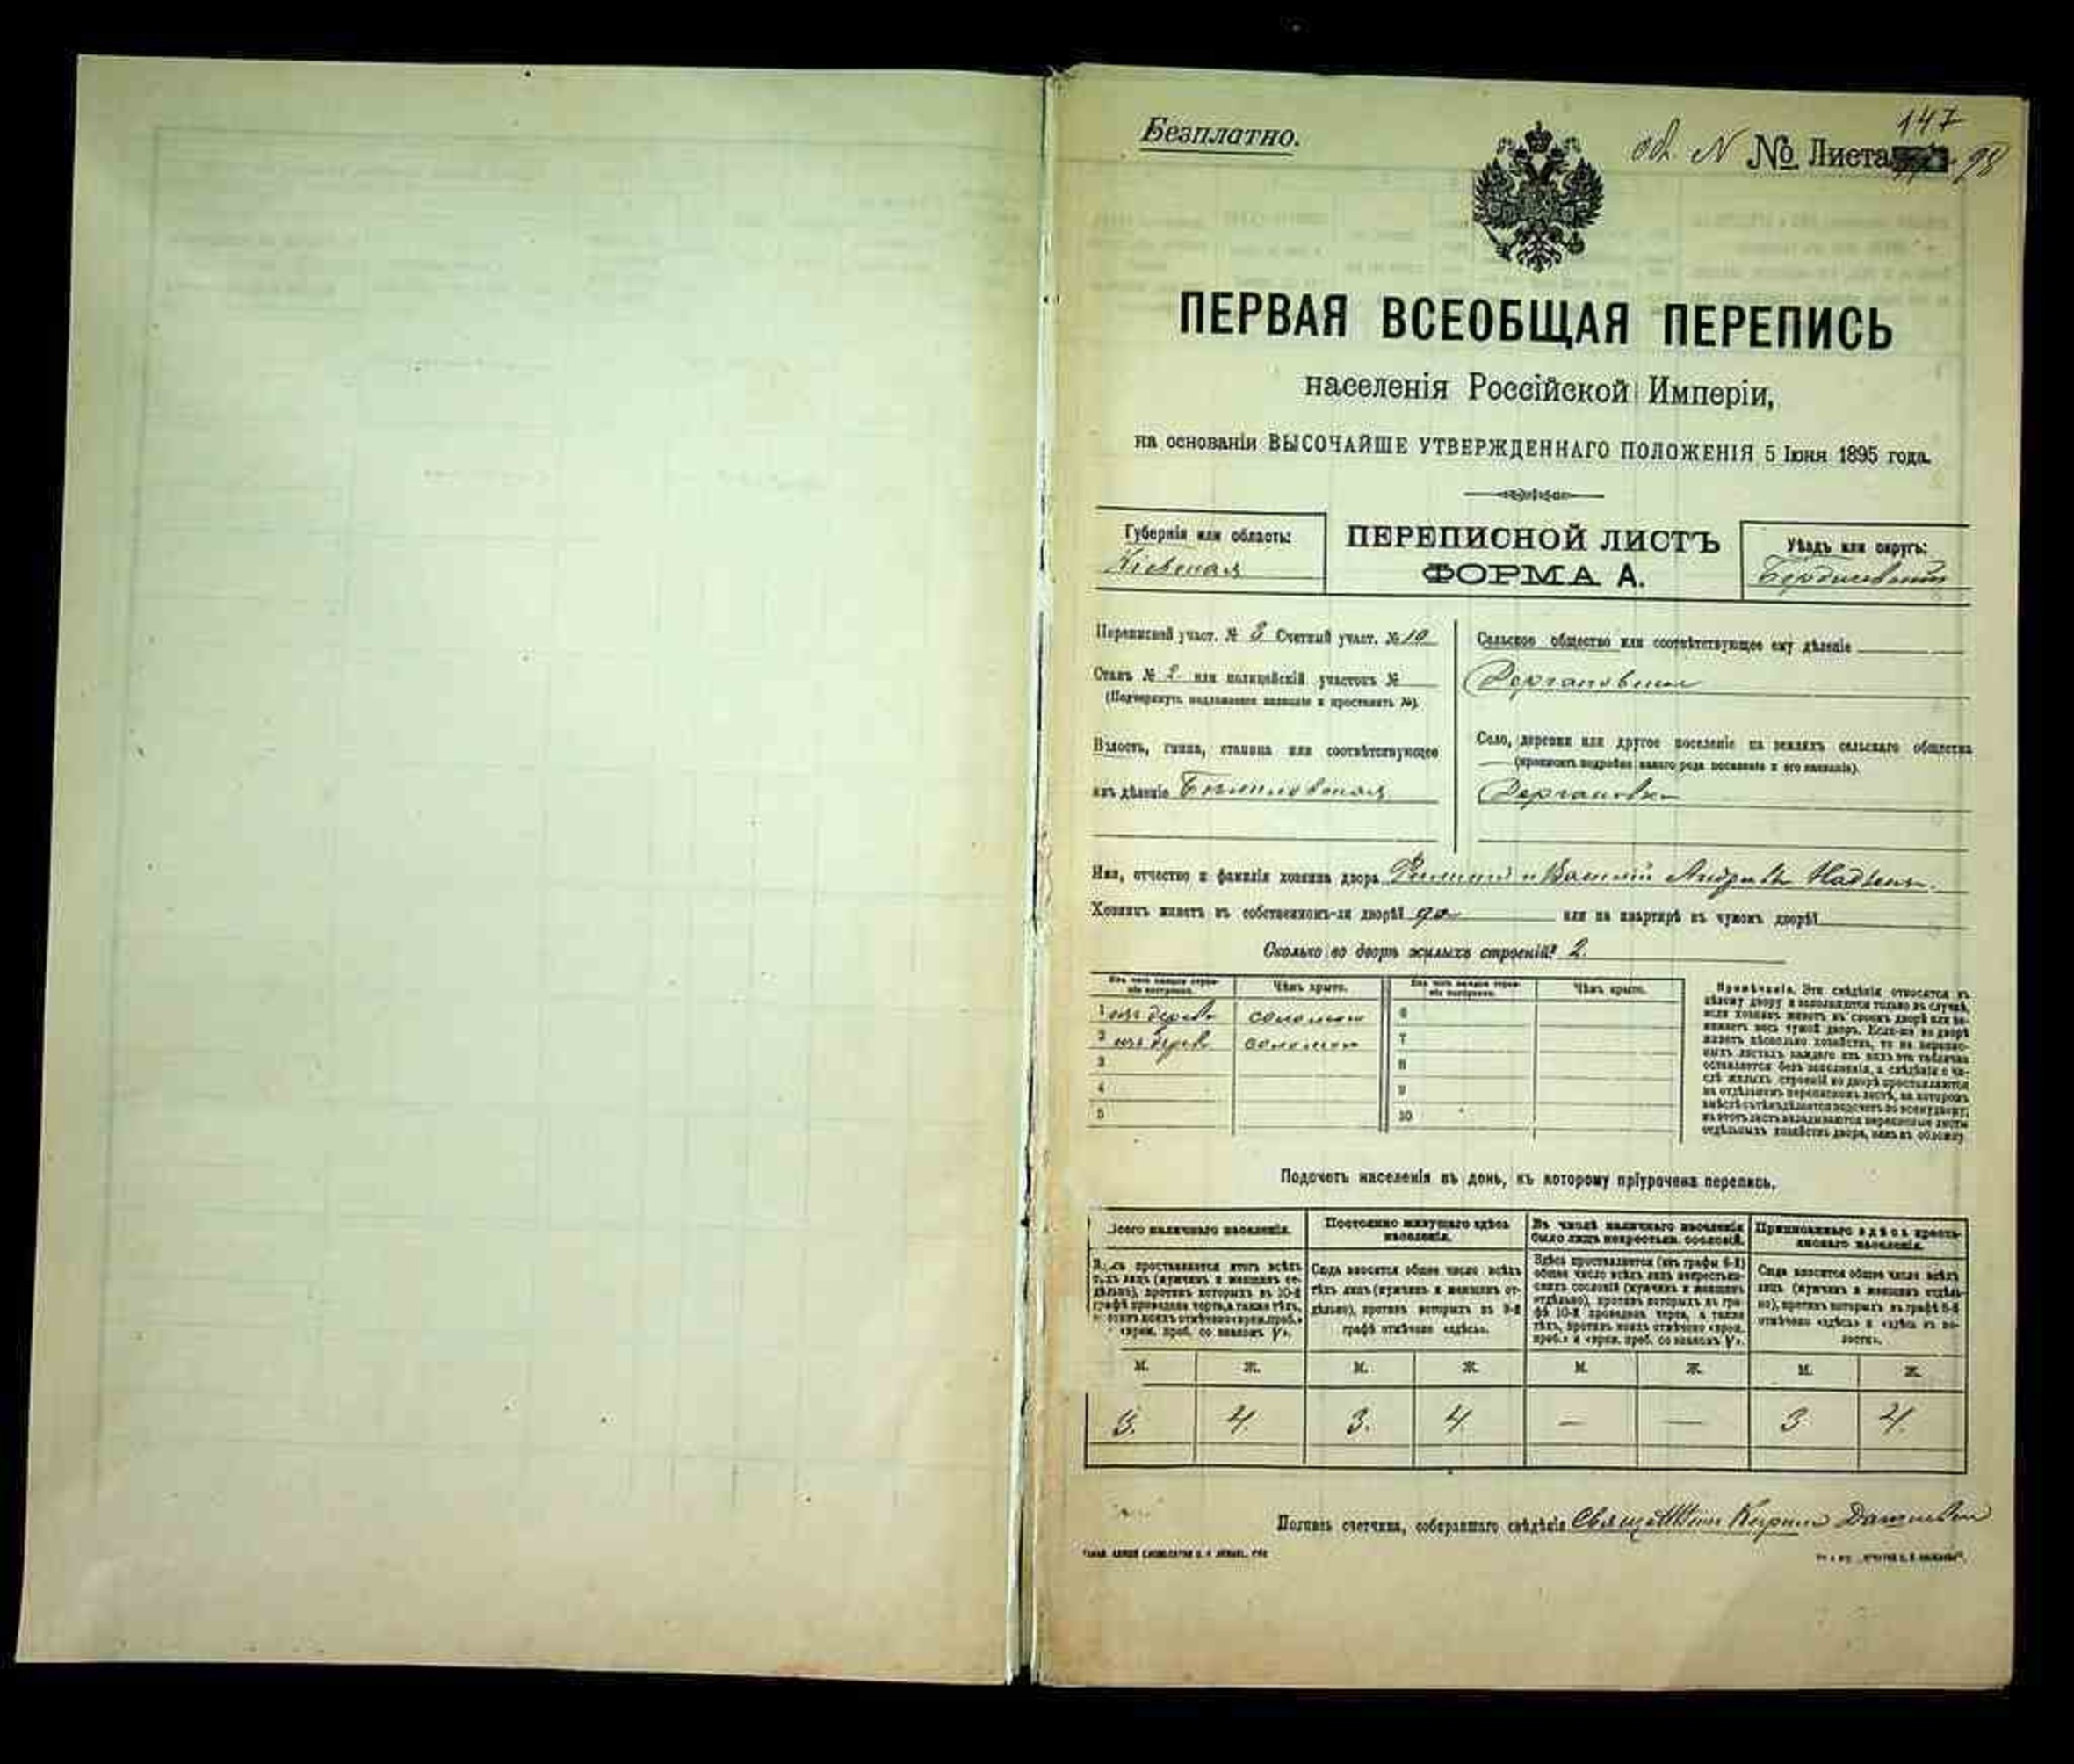 147
Безплатно.
№ Листа 98
ПЕРВАЯ ВСЕОБЩАЯ ПЕРЕПИСЬ
населенія Россійской Имперіи,
на основаніи ВЫСОЧАЙШЕ УТВЕРЖДЕННАГО ПОЛОЖЕНІЯ 5 Іюня 1895 года.
Губернія или область:
Кіевская
ПЕРЕПИСНОЙ ЛИСТЪ
ФОРМА А.
Уѣздъ или округъ:
Бердичевскій
Переписной участ. № 3 Счетный участ. № 10
Станъ № 2 или полицейскій участокъ №
(Подчеркнуть надлежащее названіе и проставить №).
Волость, гмина, станица или соотвѣтствующее
имъ дѣленіе
Сельское общество или соотвѣтствующее ему дѣленіе
Село, деревня или другое поселеніе на земляхъ сельскаго общества
(прописать подробно какого рода поселеніе и его названіе).
Имя, отчество и фамилія хозяина двора
Хозяинъ живетъ въ собственномъ-ли дворѣ? да или на квартирѣ въ чужомъ дворѣ?
Сколько во дворѣ жилыхъ строеній? 2.
Изъ чего каждое строеніе построено. Чѣмъ крыто. Изъ чего каждое строеніе построено. Чѣмъ крыто.
1 изъ дерева соломою 6
2 изъ дерев. соломою 7
3 8
4 9
5 10
Примѣчаніе. Эти свѣдѣнія относятся къ
цѣлому двору и заполняются только въ случаѣ,
если хозяинъ живетъ въ своемъ дворѣ или за-
нимаетъ весь чужой дворъ. Если-же во дворѣ
живетъ нѣсколько хозяйствъ, то на перепис-
ныхъ листахъ каждаго изъ нихъ эта табличка
оставляется безъ заполненія, а свѣдѣнія о чи-
слѣ жилыхъ строеній во дворѣ проставляются
на отдѣльномъ переписномъ листѣ, на которомъ
вмѣстѣ съ тѣмъ дѣлается подсчетъ по всему двору;
въ этотъ листъ вкладываются переписные листы
отдѣльныхъ хозяйствъ двора, какъ въ обложку.
Подсчетъ населенія въ день, къ которому пріурочена перепись.
Всего наличнаго населенія.
Здѣсь проставляется итогъ всѣхъ
тѣхъ лицъ (мужчинъ и женщинъ от-
дѣльно), противъ которыхъ въ 10-й
графѣ проведена черта, а также тѣхъ,
противъ коихъ отмѣчено «врем. преб.»
«врем. преб. со знакомъ V».
Постоянно живущаго здѣсь
населенія.
Сюда вносится общее число всѣхъ
тѣхъ лицъ (мужчинъ и женщинъ от-
дѣльно), противъ которыхъ въ 9-й
графѣ отмѣчено «здѣсь».
Въ числѣ наличнаго населенія
было лицъ некрестьян. сословій.
Здѣсь проставляется (изъ графы 6-й)
общее число всѣхъ лицъ некрестьян-
скихъ сословій (мужчинъ и женщинъ
отдѣльно), противъ которыхъ въ гра-
фѣ 10-й проведена черта, а также
тѣхъ, противъ коихъ отмѣчено «врем.
преб.» и «врем. преб. со знакомъ V».
Приписаннаго здѣсь кресть-
янскаго населенія.
Сюда вносится общее число всѣхъ
лицъ (мужчинъ и женщинъ отдѣль-
но), противъ которыхъ въ графѣ 8-й
отмѣчено «здѣсь» и «здѣсь въ во-
лости».
М. Ж. М. Ж. М. Ж. М. Ж.
3. 4. 3. 4. — — 3 4.
Подпись счетчика, собиравшаго свѣдѣнія